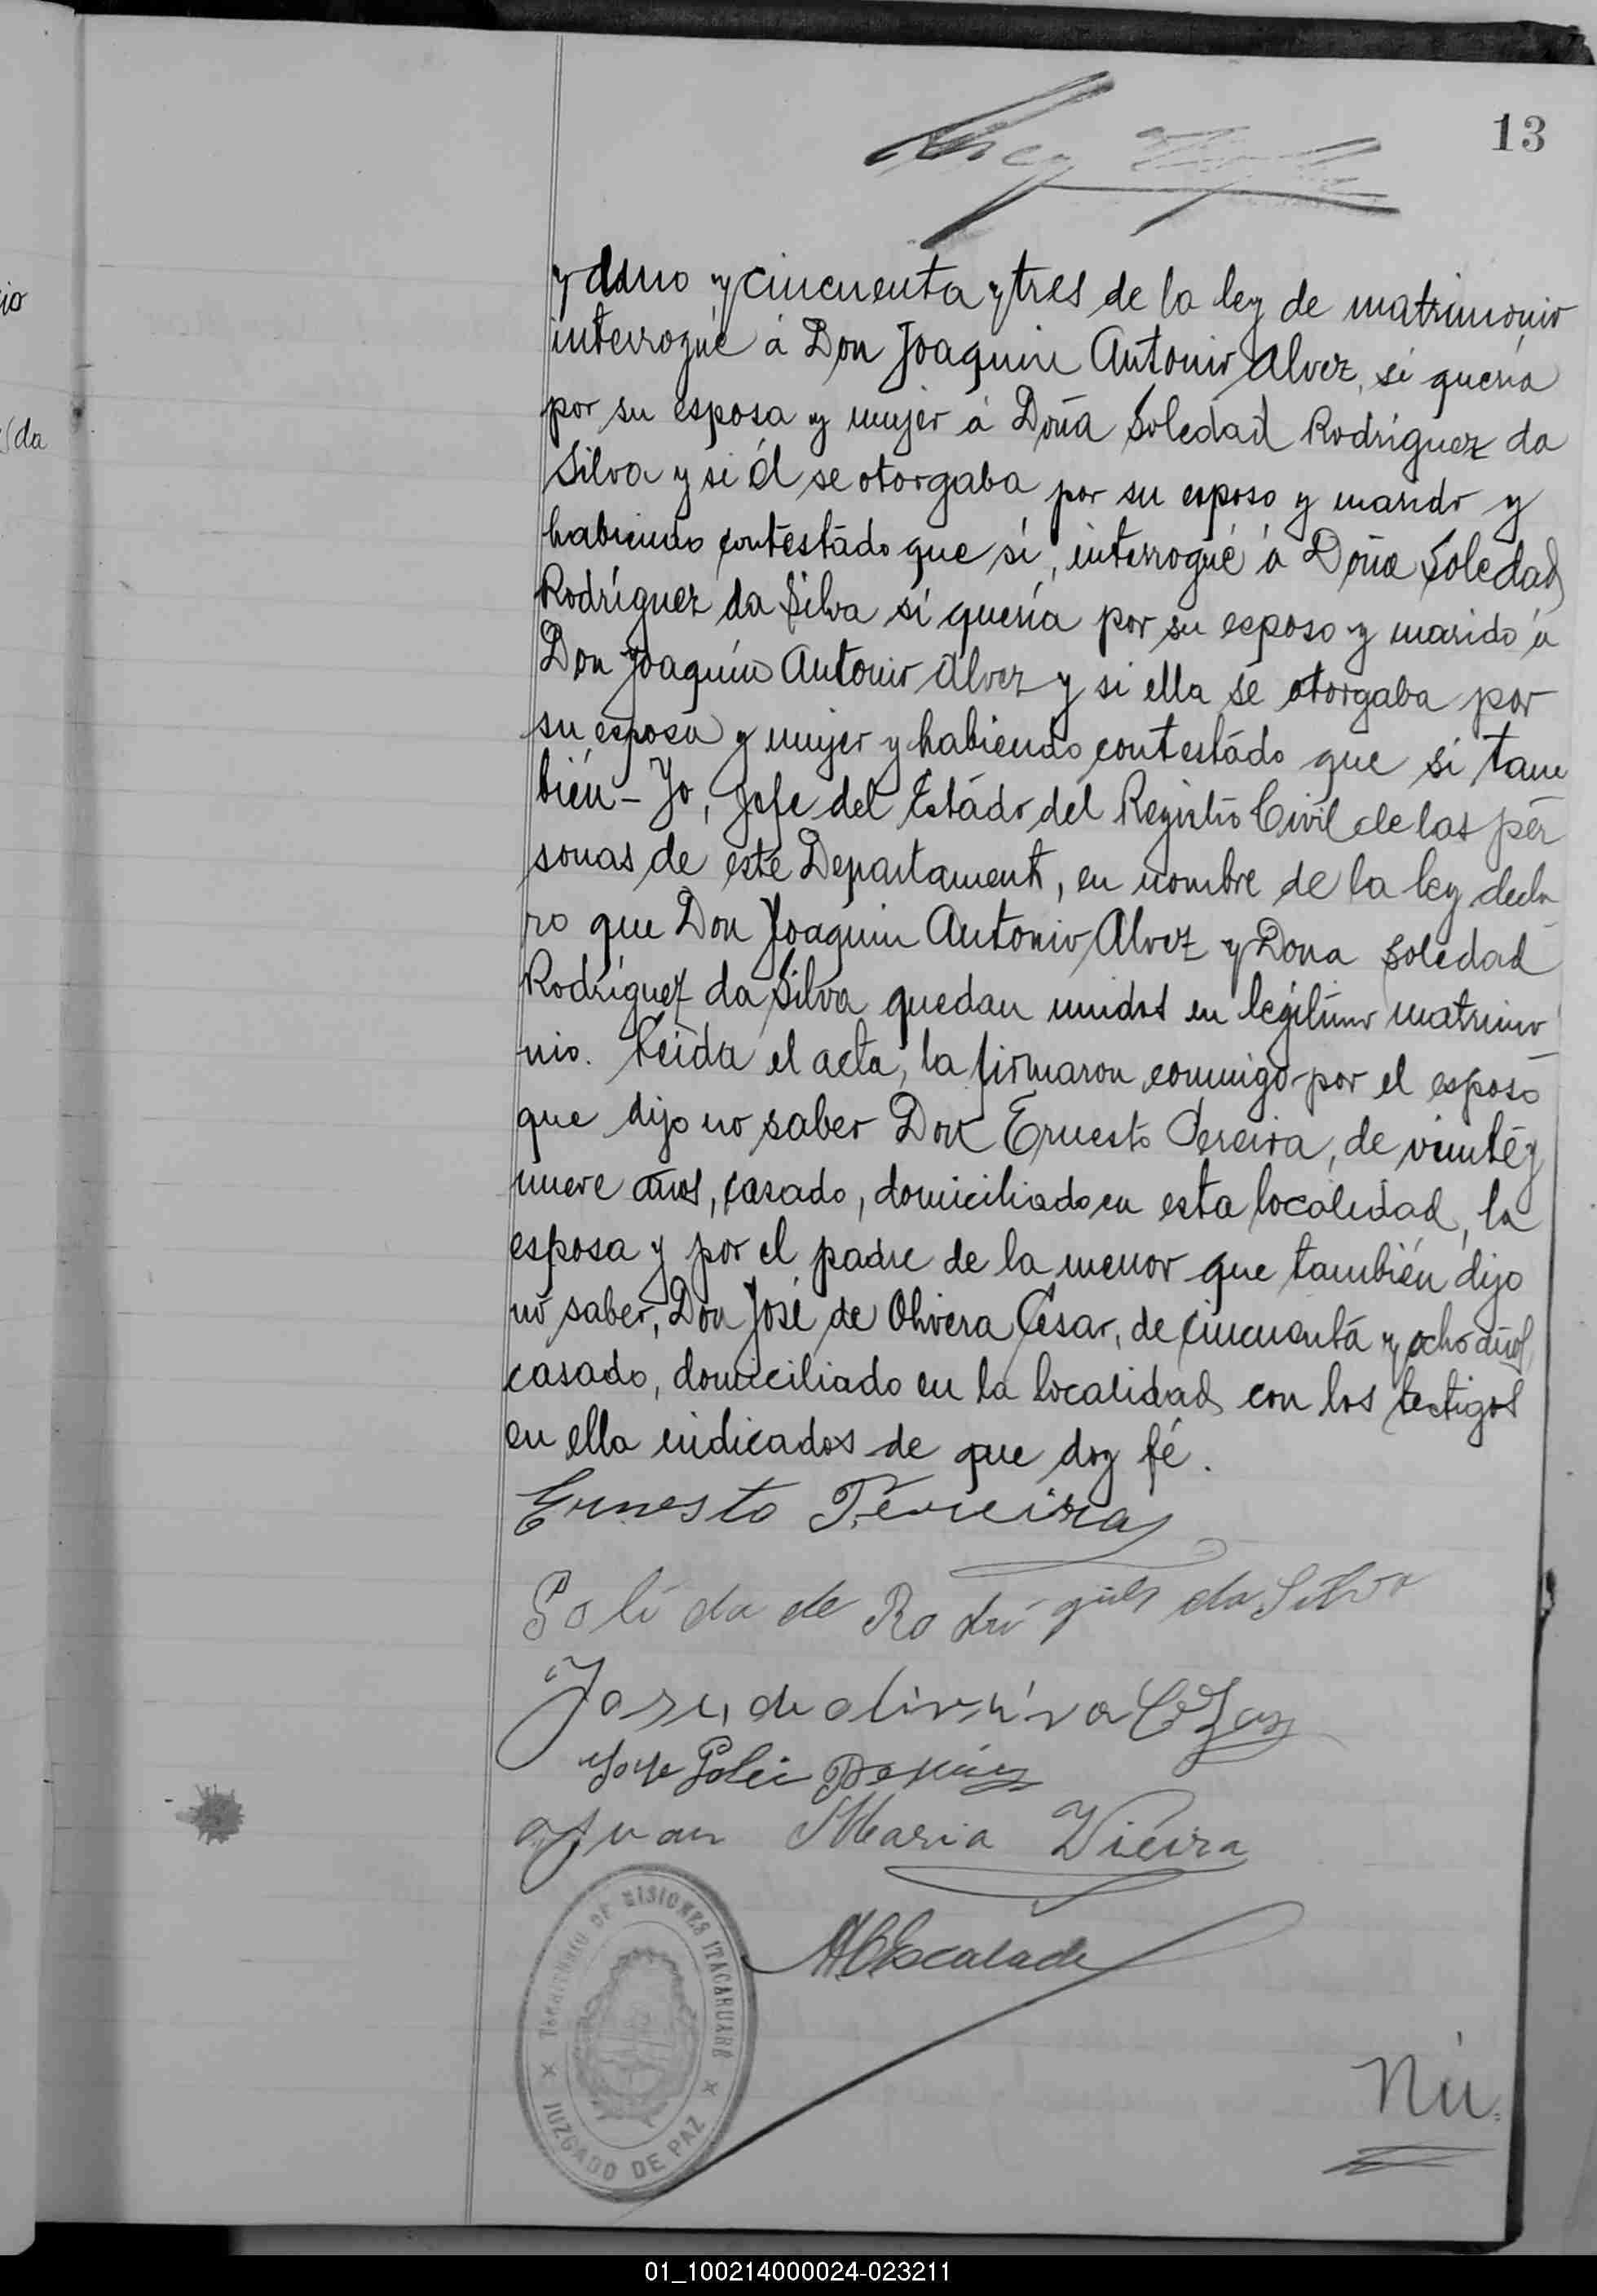 13
io
da
y cinco y cincuenta y tres de la ley de matrimonio
interrogué á Don Joaquin Antonio Alvez, si queria
por su esposa y mujer á Doña Soledad Rodríguez da
Silva y si él se otorgaba por su esposo y marido y
habiendo contestado que sí, interrogué á Doña Soledad
Rodríguez da Silva si quería por su esposo y marido á
Don Joaquín Antonio Alvez y si ella se otorgaba por
su esposa y mujer y habiendo contestádo que si tam
bién - Yo, Jefe del Estádo del Registro Civil de las per
sonas de este Departament, en nombre de la ley decla
ro que Don Joaquin Antonio Alvez y Dona Soledad
Rodríguez da Silva quedan unidos en legítimo matrimo
nio. Leída el acta, la firmaron conmigo por el esposo
que dijo no saber Don Ernesto Pereira, de veinte y
nueve años, casado, domiciliado en esta localidad, la
esposa y por el padre de la menor que también dijo
no saber, Don José de Olivera Cesar, de cincuenta y ocho años,
casado, domiciliado en la localidad con los testigos
en ella indicados de que doy fé.
Ernesto Pereira
Soli da de Rodri guis da Silva
Jose, de oliveira Cezar
Juan Maria Vieira
A Escalada
TERRITORIO DE MISIONES ITACARUARÉ
JUZGADO DE PAZ
Nú.
01_100214000024-023211